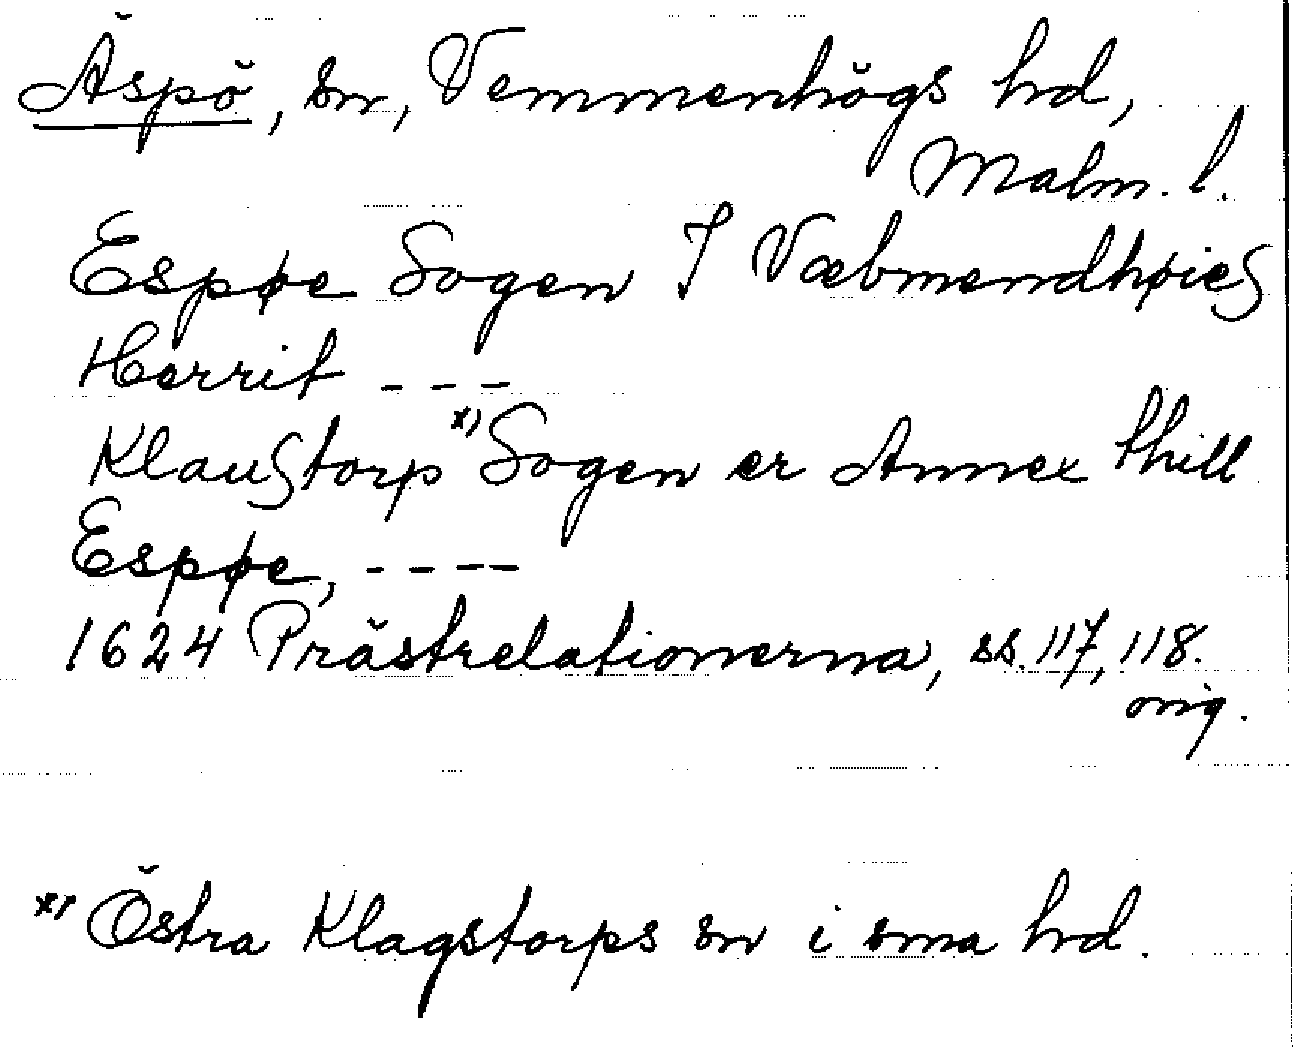 Äspö, sn, Vemmenhögs hd,
Malm. l.
Espøe Sogen I Væbmendhøies
Herrit ---
Klaustorp x) Sogen er Annex thill
Espøe, ----
1624 Prästrelationerna, ss. 117, 118.
orig.
x) Östra Klagstorps sn i sma hd.